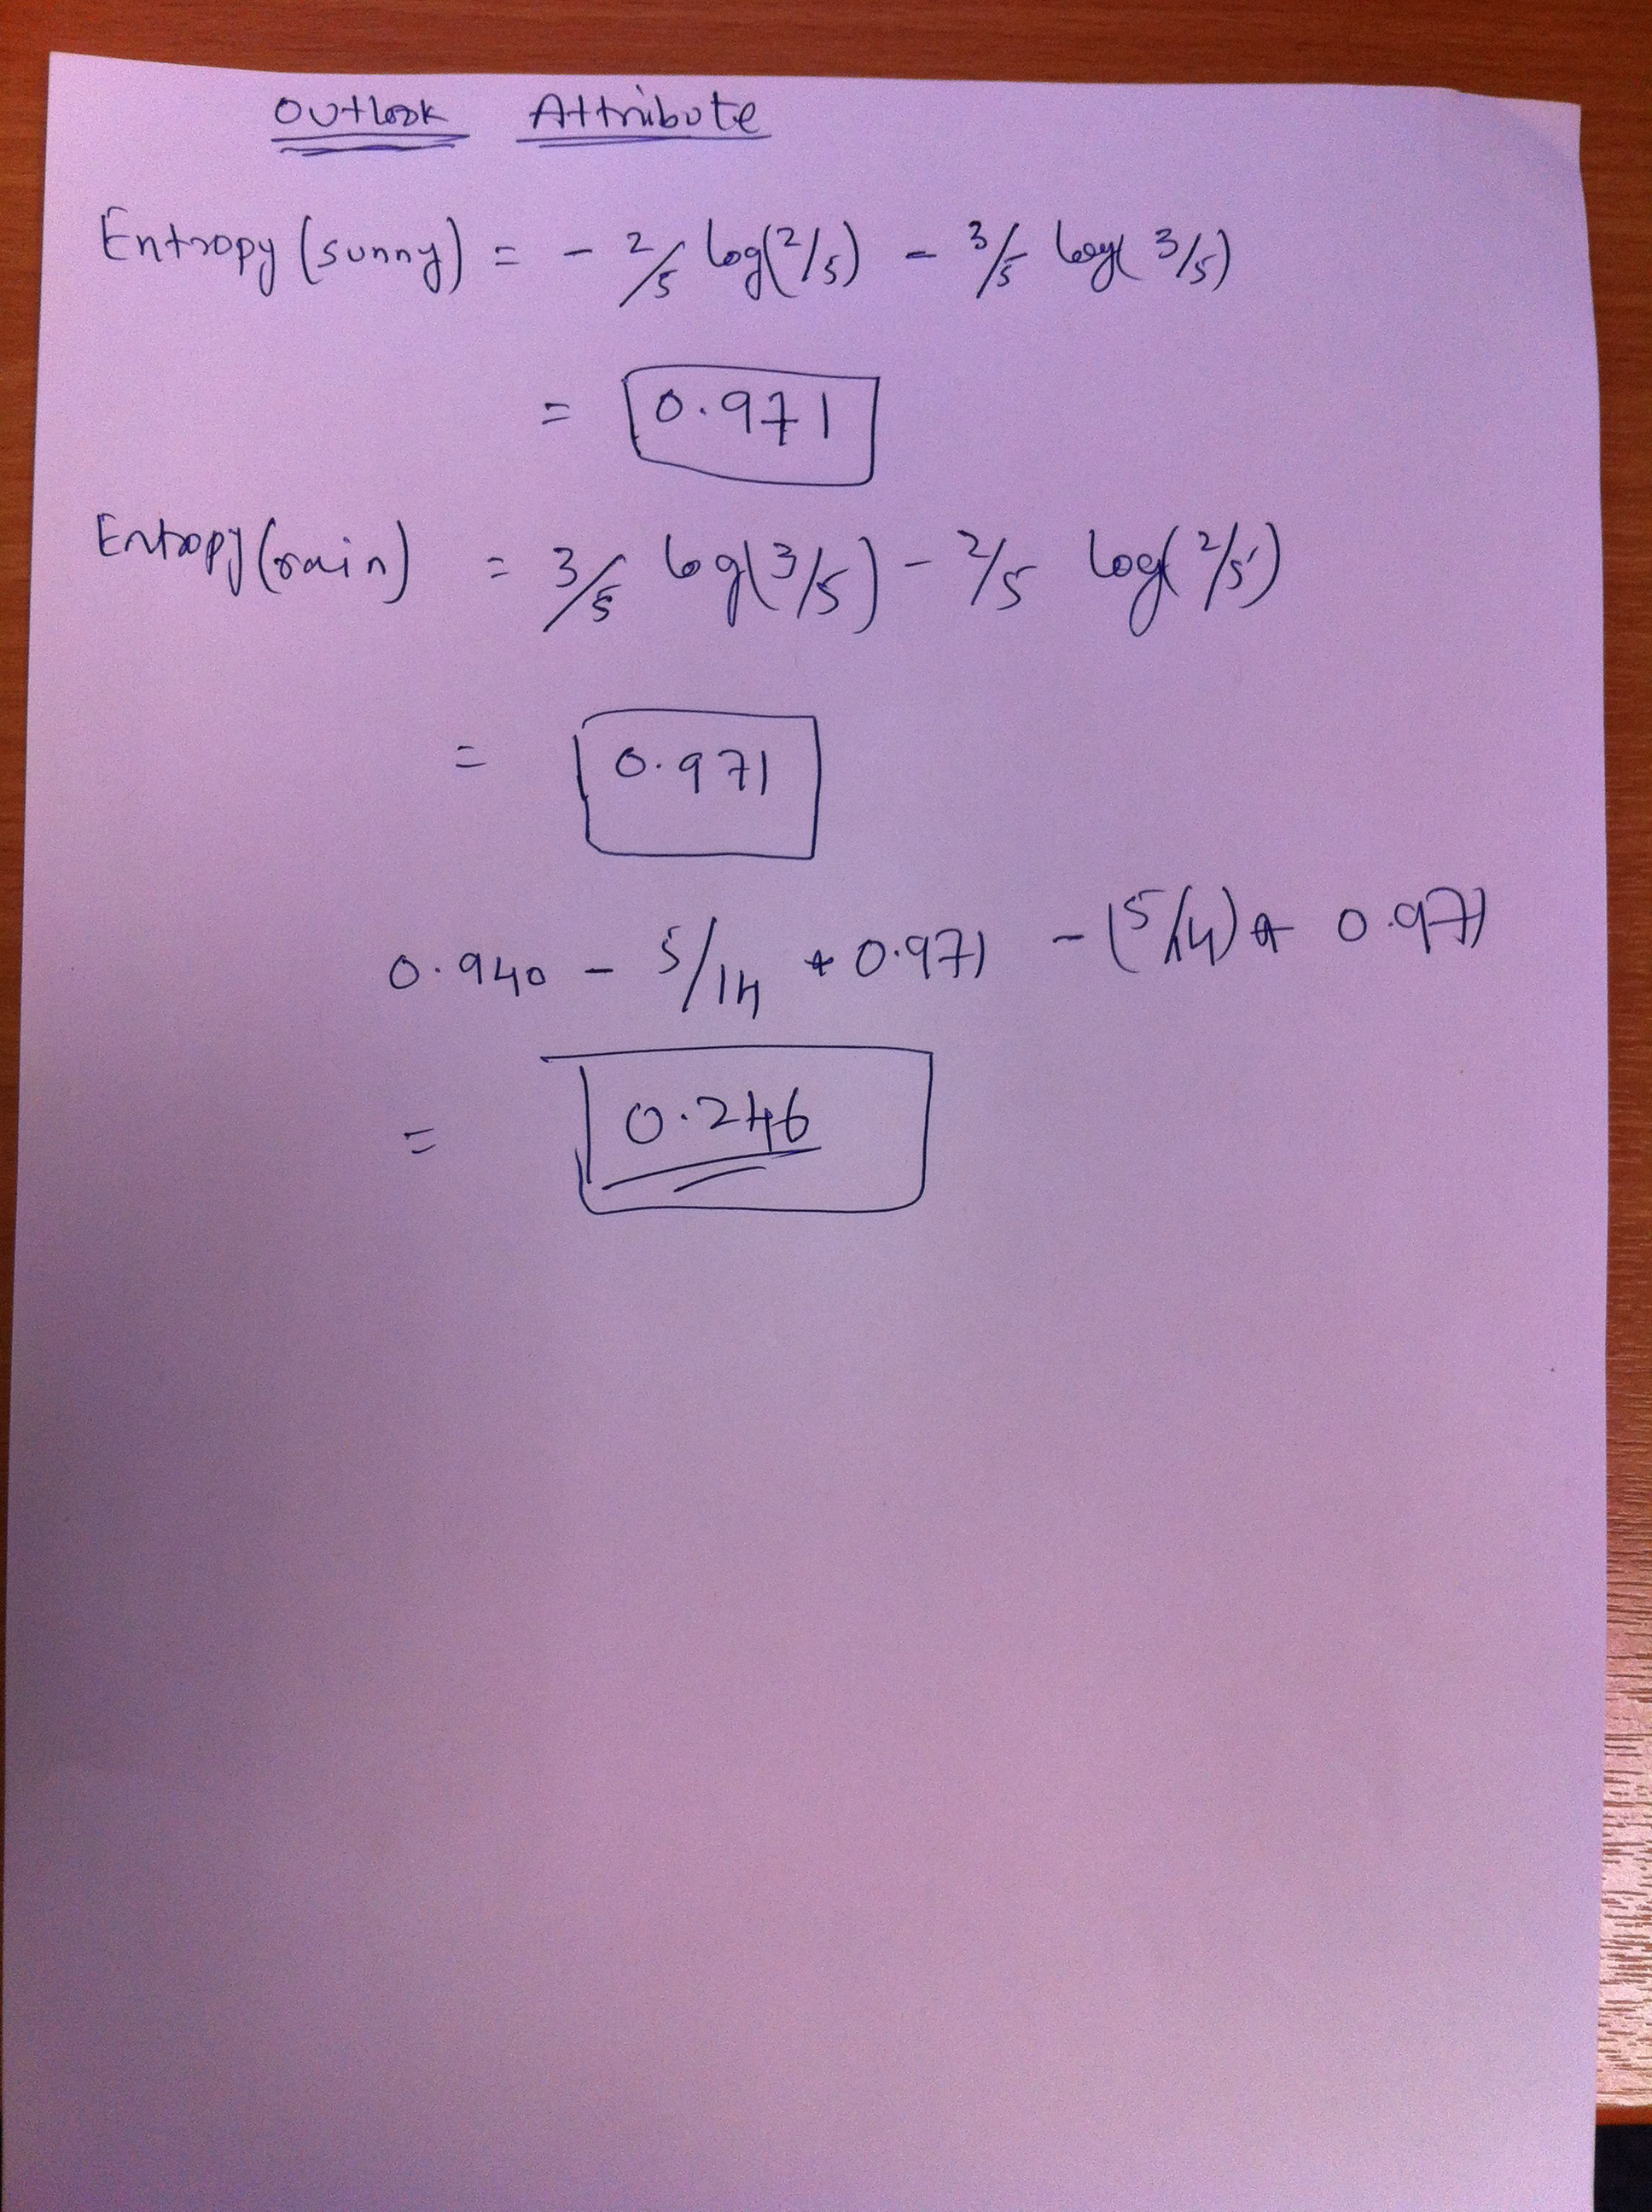 Outlook Attribute
Entropy (sunny) = - 2/5 log(2/5) - 3/5 log(3/5)
= 0.971
Entropy (rain) = 3/5 log(3/5) - 2/5 log(2/5)
= 0.971
0.940 - 5/14 * 0.971 - (5/14) * 0.971
= 0.246